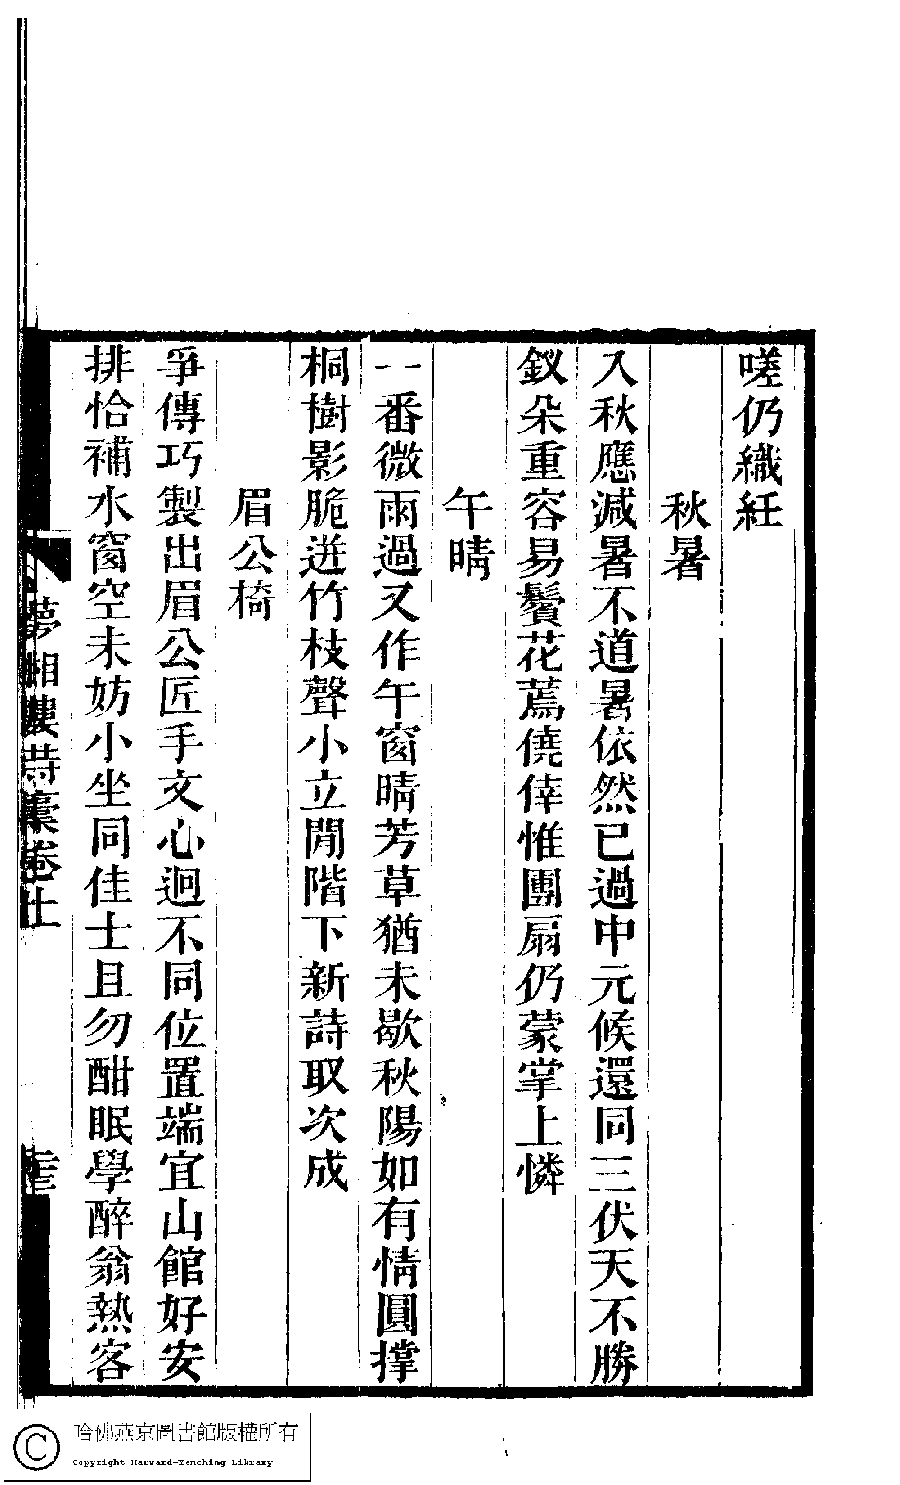 嗟仍織紝
秋暑
入秋應減暑不道暑依然已過中元候還同三伏天不勝
釵朵重容易鬢花蔫僥倖惟團扇仍蒙掌上憐
午晴
一番微雨過又作午窗晴芳草猶未歇秋陽如有情圓撐
桐樹影脆迸竹枝聲小立閒階下新詩取次成
眉公椅
爭傳巧製出眉公匠手文心迥不同位置端宜山館好安
排恰補水窗空未妨小坐同佳士且勿酣眠學醉翁熱客
夢湘樓詩稾卷上
哈佛燕京圖書館版權所有
Copyright Harvard-Yenching Library